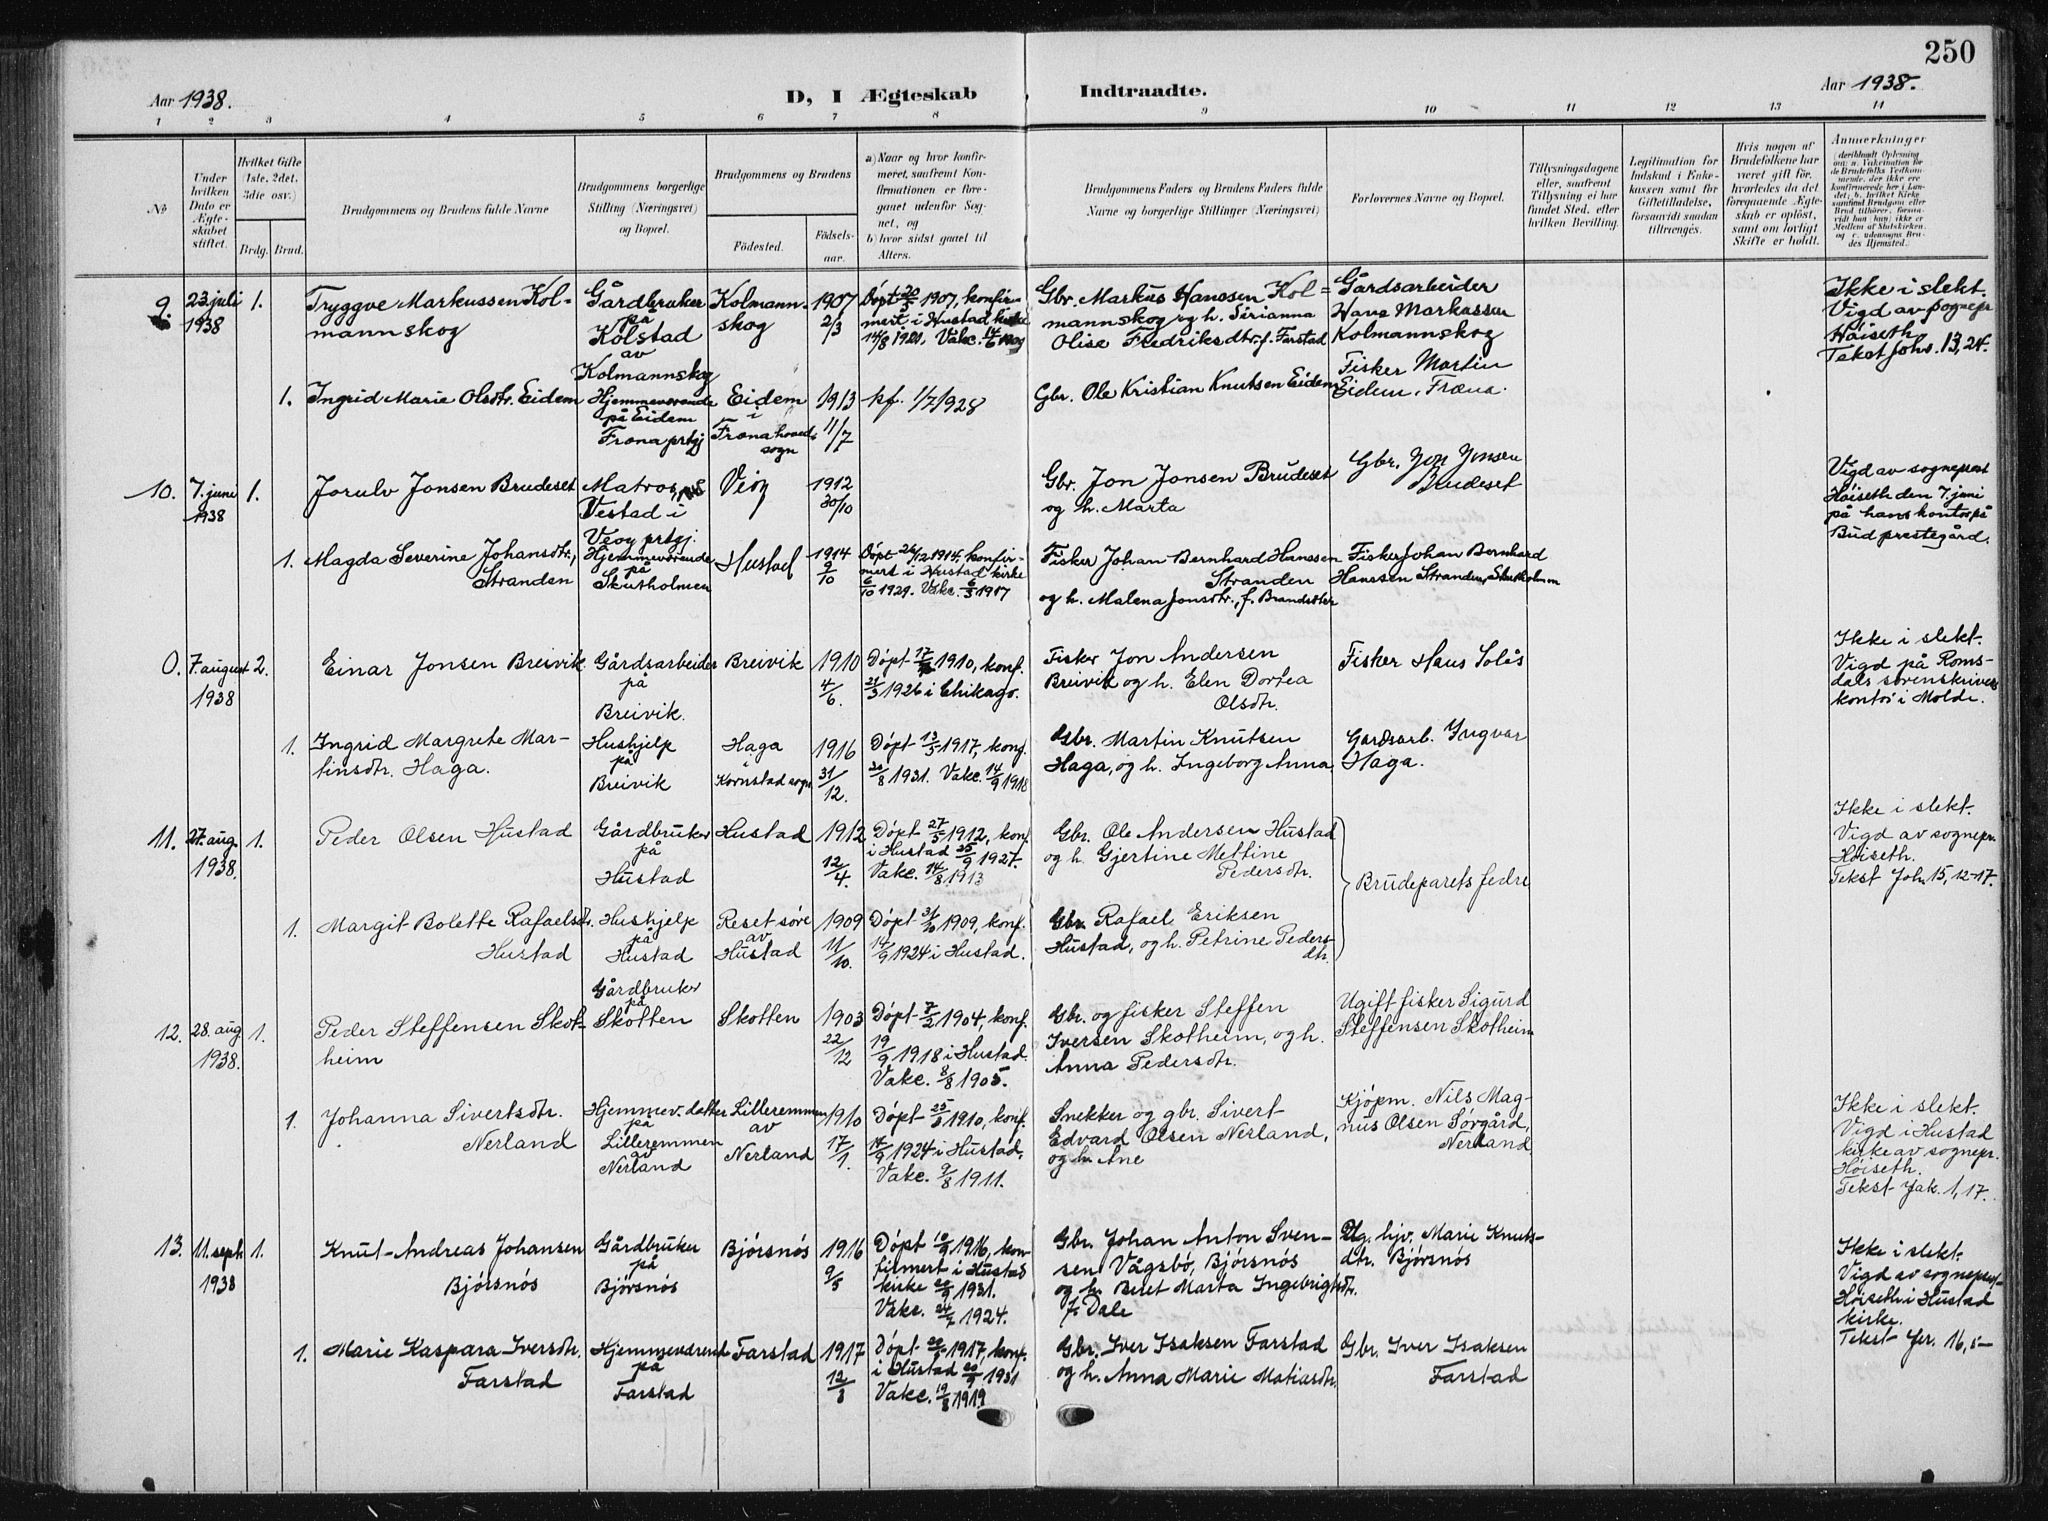 250
Aar 1938.
D, I Ægteskab
Indtraadte.
Aar 1938.
1 2 3 4 5 6 7 8 9 10 11 12 13 14
No
Under hvilken Dato er Ægteskabet stiftet.
Hvilket Gifte (1ste, 2det, 3die osv.)
Brdg. Brud.
Brudgommens og Brudens fulde Navne
Brudgommens borgerlige Stilling (Næringsvei) og Bopæl.
Brudgommens og Brudens
Fødested.
Fødselsaar.
a) Naar og hvor konfirmeret, saafremt Konfirmationen er foregaaet udenfor Sognet, og
b) hvor sidst gaaet til Alters.
Brudgommens Faders og Brudens Faders fulde Navne og borgerlige Stillinger (Næringsvei)
Forlovernes Navne og Bopæl.
Tillysningsdagene eller, saafremt Tillysning ei har fundet Sted, efter hvilken Bevilling.
Legitimation for Indskud i Enkekassen samt for Giftetilladelse, forsaavidt saadan tiltrænges.
Hvis nogen af Brudefolkene har været gift før, hvorledes da det foregaaende Ægteskab er opløst, samt om lovligt Skifte er holdt.
Anmærkninger
9. 23. juli 1938
1.
Tryggve Markussen Kolmannskog
Gårdbruker på Kolstad av Kolmannskog
Kolmannskog
1907 2/3
Døpt 20/5 1907, konfirmert i Hustad kirke 14/8 1921. Vakc.
Gbr. Markus Hanssen Kolmannskog og h. Sirianna Olise Fredriksdtr. f. Farstad
Gårdsarbeider Hans Markussen Kolmannskog
Ikke i slekt.
Vigd av sognepr Høiseth
Tekst Johs. 13, 24.
1. Ingrid Marie Olsdtr. Eidem
Hjemmeværende på Eidem Fræna prtgj
Eidem i Fræna hovedsogn
1913 11/7
kf. 1/7 1928
Gbr. Ole Kristian Knutsen Eidem
Fisker Martin Eidem, Fræna.
10. 7. juni 1938
1.
Jorulv Jonsen Brudeset
Matros, Vestad i Veøy prtgj.
Veøy
1912 30/10
Gbr. Jon Jonsen Brudeset og h. Marta
Gbr. Jon Jonsen Brudeset
Vigd av sogneprest Høiseth den 7. juni på hans kontor på Bud prestegård.
1. Magda Severine Johansdtr. Stranden
Hjemmeværende på Skutholmen
Hustad
1914 9/10
Døpt 26/12 1914, konfirmert i Hustad kirke 6/10 1929. Vakc. 6/5 1917
Fisker Johan Bernhard Hanssen Stranden og h. Malena Jonsdtr., f. Brandsæter
Fisker Johan Bernhard Hanssen Stranden, Skutholmen
0. 7. august 1938
2.
Einar Jonsen Breivik
Gårdsarbeider på Breivik.
Breivik
1910 4/6.
Døpt 17/7 1910, konf. 21/3 1926 i Chikago.
Fisker Jon Andersen Breivik og h. Elen Dortea Olsdtr.
Fisker Hans Solås
Ikke i slekt.
Vigd på Romsdals sorenskrivers kontor i Molde.
1. Ingrid Margrete Martinsdtr. Haga.
Hushjelp på Breivik
Haga i Kornstad sogn
1916 31/12.
Døpt 13/5 1917, konf. 30/8 1931. Vakc. 14/9 1918
Gbr. Martin Knutsen Haga, og h. Ingeborg Anna
Gardsarb. Yngvar Haga.
11. 27. aug. 1938.
1.
Peder Olsen Hustad
Gårdbruker på Hustad
Hustad
1912 12/4.
Døpt 27/5 1912, konf i Hustad 25/9 1927. Vakc. 14/8. 1913
Gbr. Ole Andersen Hustad og h. Gjertine Mettine Pedersdtr.
Brudeparets fedre
Ikke i slekt.
Vigd av sognepr. Høiseth.
Tekst Joh. 15, 12-17.
1. Margit Bolette Rafaelsdtr. Hustad
Hushjelp på Hustad
Reset søre av Hustad
1909 11/10.
Døpt 31/10 1909, konf. 14/9 1924 i Hustad.
Gbr. Rafael Eriksen Hustad, og h. Petrine Pedersdtr.
12. 28. aug 1938.
1.
Peder Steffensen Skotheim
Gårdbruker på Skotten
Skotten
1903 22/12
Døpt 7/2 1904, konf. 19/9 1918 i Hustad. Vakc. 8/8 1905.
Gbr. og fisker Steffen Iversen Skotheim, og h. Anna Pedersdtr.
Ugift fisker Sigurd Steffensen Skotheim
1. Johanna Sivertsdtr. Nerland
Hjemmev. datter på Lilleremmen av Nerland
Lilleremmen av Nerland
1910 17/1.
Døpt 25/3 1910, konf. 14/9 1924 i Hustad, Vakc. 9/8 1911.
Snekker og gbr. Sivert Edvard Olsen Nerland, og h. Ane
Kjøpm. Nils Magnus Olsen Sørgård, Nerland
Ikke i slekt.
Vigd i Hustad kirke av sognepr. Høiseth.
Tekst Jak. 1, 17.
13. 11. sept 1938
1.
Knut-Andreas Johansen Bjørsnøs
Gårdbruker på Bjørsnøs
Bjørsnøs
1916 9/5
Døpt 10/9 1916, konfirmert i Hustad kirke 20/9 1931. Vakc. 24/7 1924.
Gbr. Johan Anton Svensen Vågsbø, Bjørsnøs og h. Beret Marta Ingebrigtsdtr. f. Dale
Ug. hjv. Marie Knutsdtr. Bjørsnøs
Ikke i slekt.
Vigd av sogneprest Høiseth i Hustad kirke.
Tekst Jer. 16, 5-
1. Marie Kaspara Iversdtr. Farstad
Hjemmeværend på Farstad
Farstad
1917 12/3
Døpt 1917, konf. i Hustad 20/9 1931 Vakc. 19/8 1919
Gbr. Iver Isaksen Farstad og h. Anna Marie Matiasdtr.
Gbr. Iver Isaksen Farstad